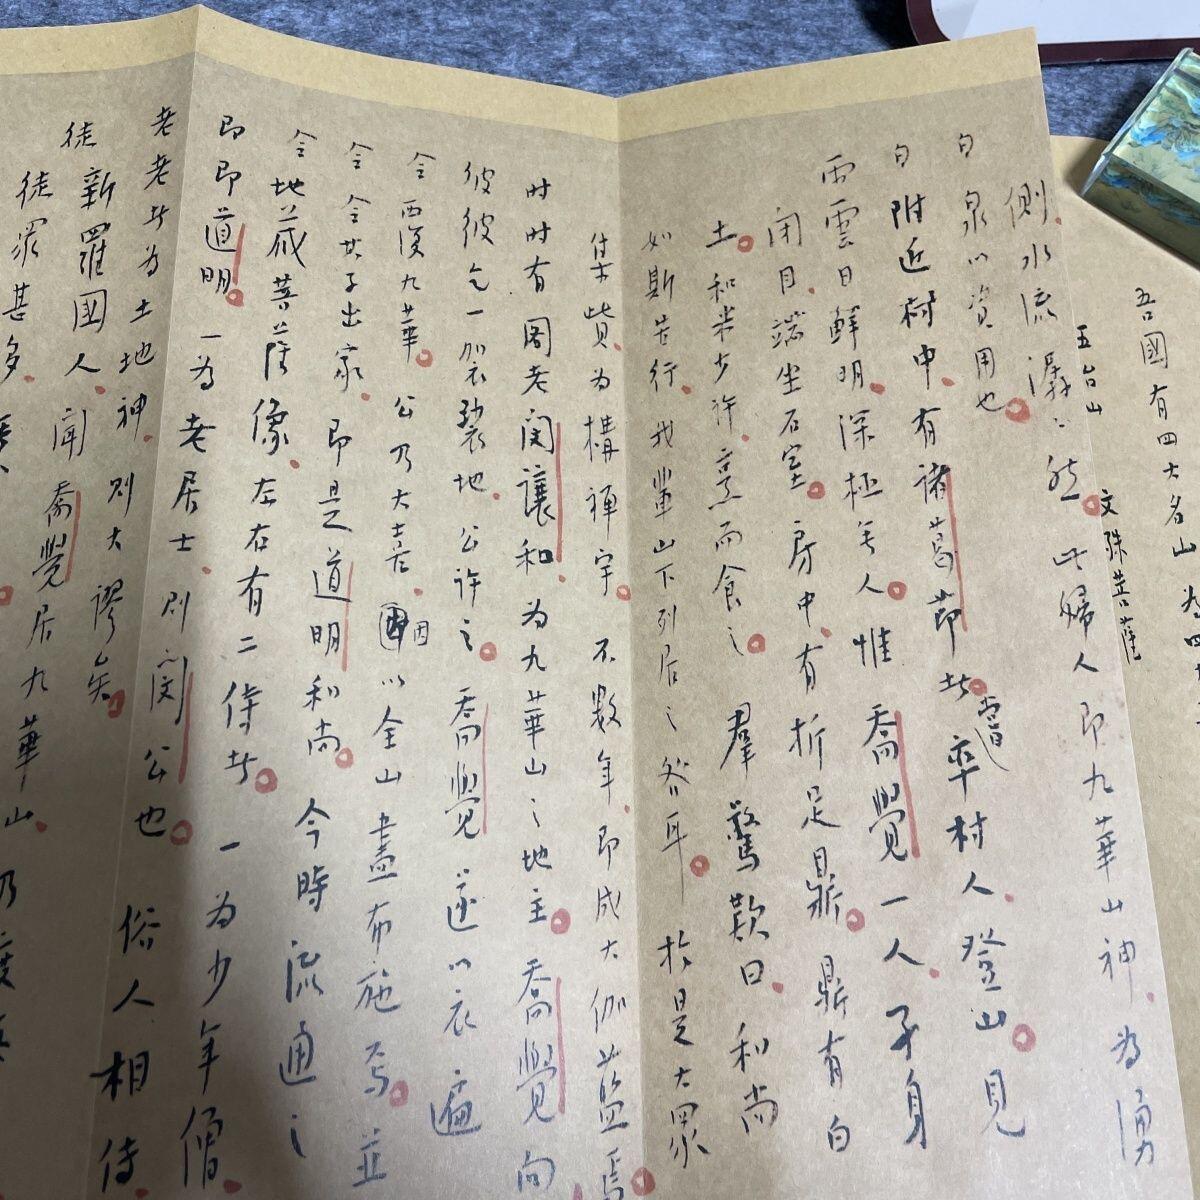 吾國有四大名山為四
五台山 文殊菩薩
側水流潺々然此婦人即九華山神為湧
泉以資用也
附近村中有諸葛節者嘗率村人登山見
雲日鮮明深極無人惟喬覺一人孑身
閉目端坐石室房中有折足鼎鼎有白
土和米少許烹而食之羣驚歎曰和尚
如斯苦行我輩山下列居之咎耳於是大眾
集貲為構禪宇不數年即成大伽藍焉
時時有閣老閔讓和為九華山之地主喬覺向
彼彼乞一袈裟地公許之喬覺遂以衣遍
西復九華公乃大喜因以全山盡布施焉並
令令其子出家即是道明和尚今時流通之
令地藏菩薩像左右有二侍者一為少年僧
即即道明一為老居士則閔公也俗人相侍
老老者為土地神則大謬矣
徒新羅國人聞喬覺居九華山乃渡
徒眾甚多